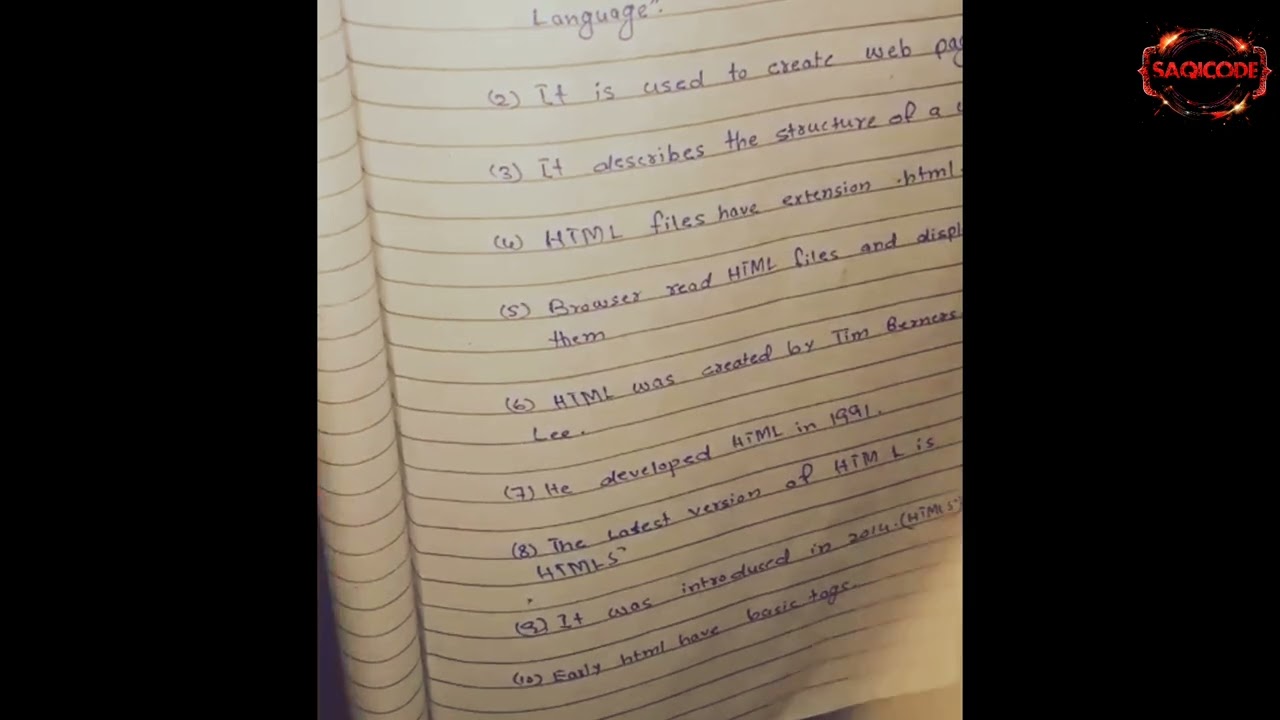 Language".
(2) It is used to create web pag
(3) It describes the structure of a
(4) HTML files have extension .html.
(5) Browser read HTML files and displ
them
(6) HTML was created by Tim Berners.
Lee.
(7) He developed HTML in 1991.
(8) The latest version of HTML is
HTML5
(9) It was introduced in 2014.(HTML5)
(10) Early html have basic tags.
SAQICODE